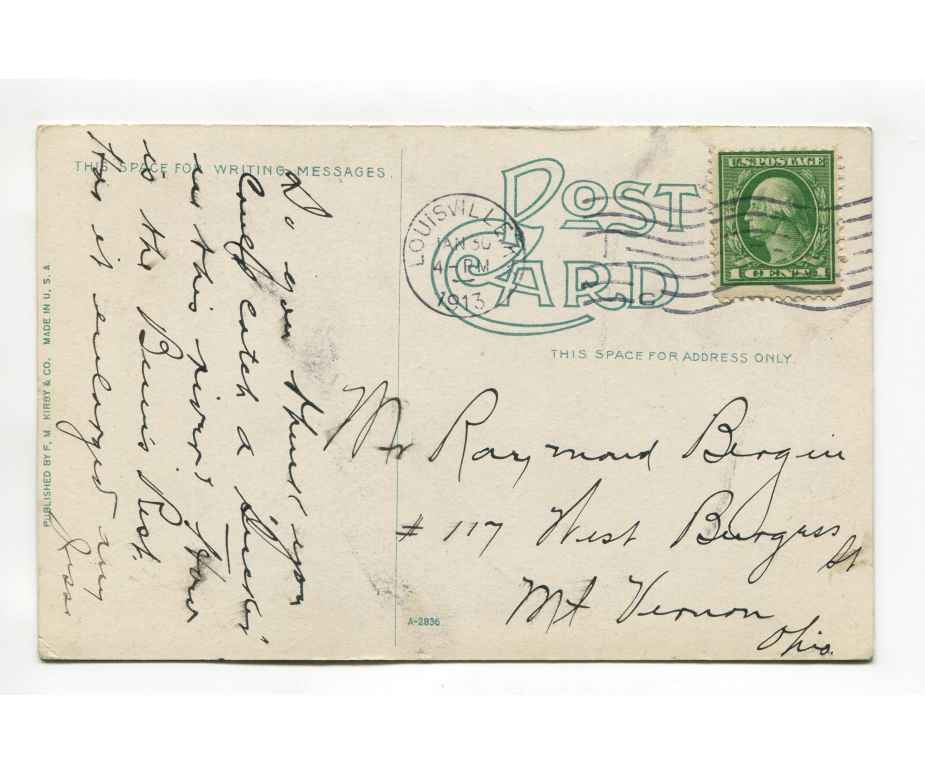 THIS SPACE FOR WRITING MESSAGES.
POST
CARD
THIS SPACE FOR ADDRESS ONLY.
LOUISVILLE
JAN 30
4 – PM
1913
U.S. POSTAGE
1 CENT 1
Do you think you
could catch a "sucker"
in this river? How
is the Bunis Rest.
Has it enlarged any
Jess.
Mr Raymond Bergin
# 117 West Burgess
St
Mt Vernon
Ohio.
PUBLISHED BY F. M. KIRBY & CO. MADE IN U. S. A
A-2836